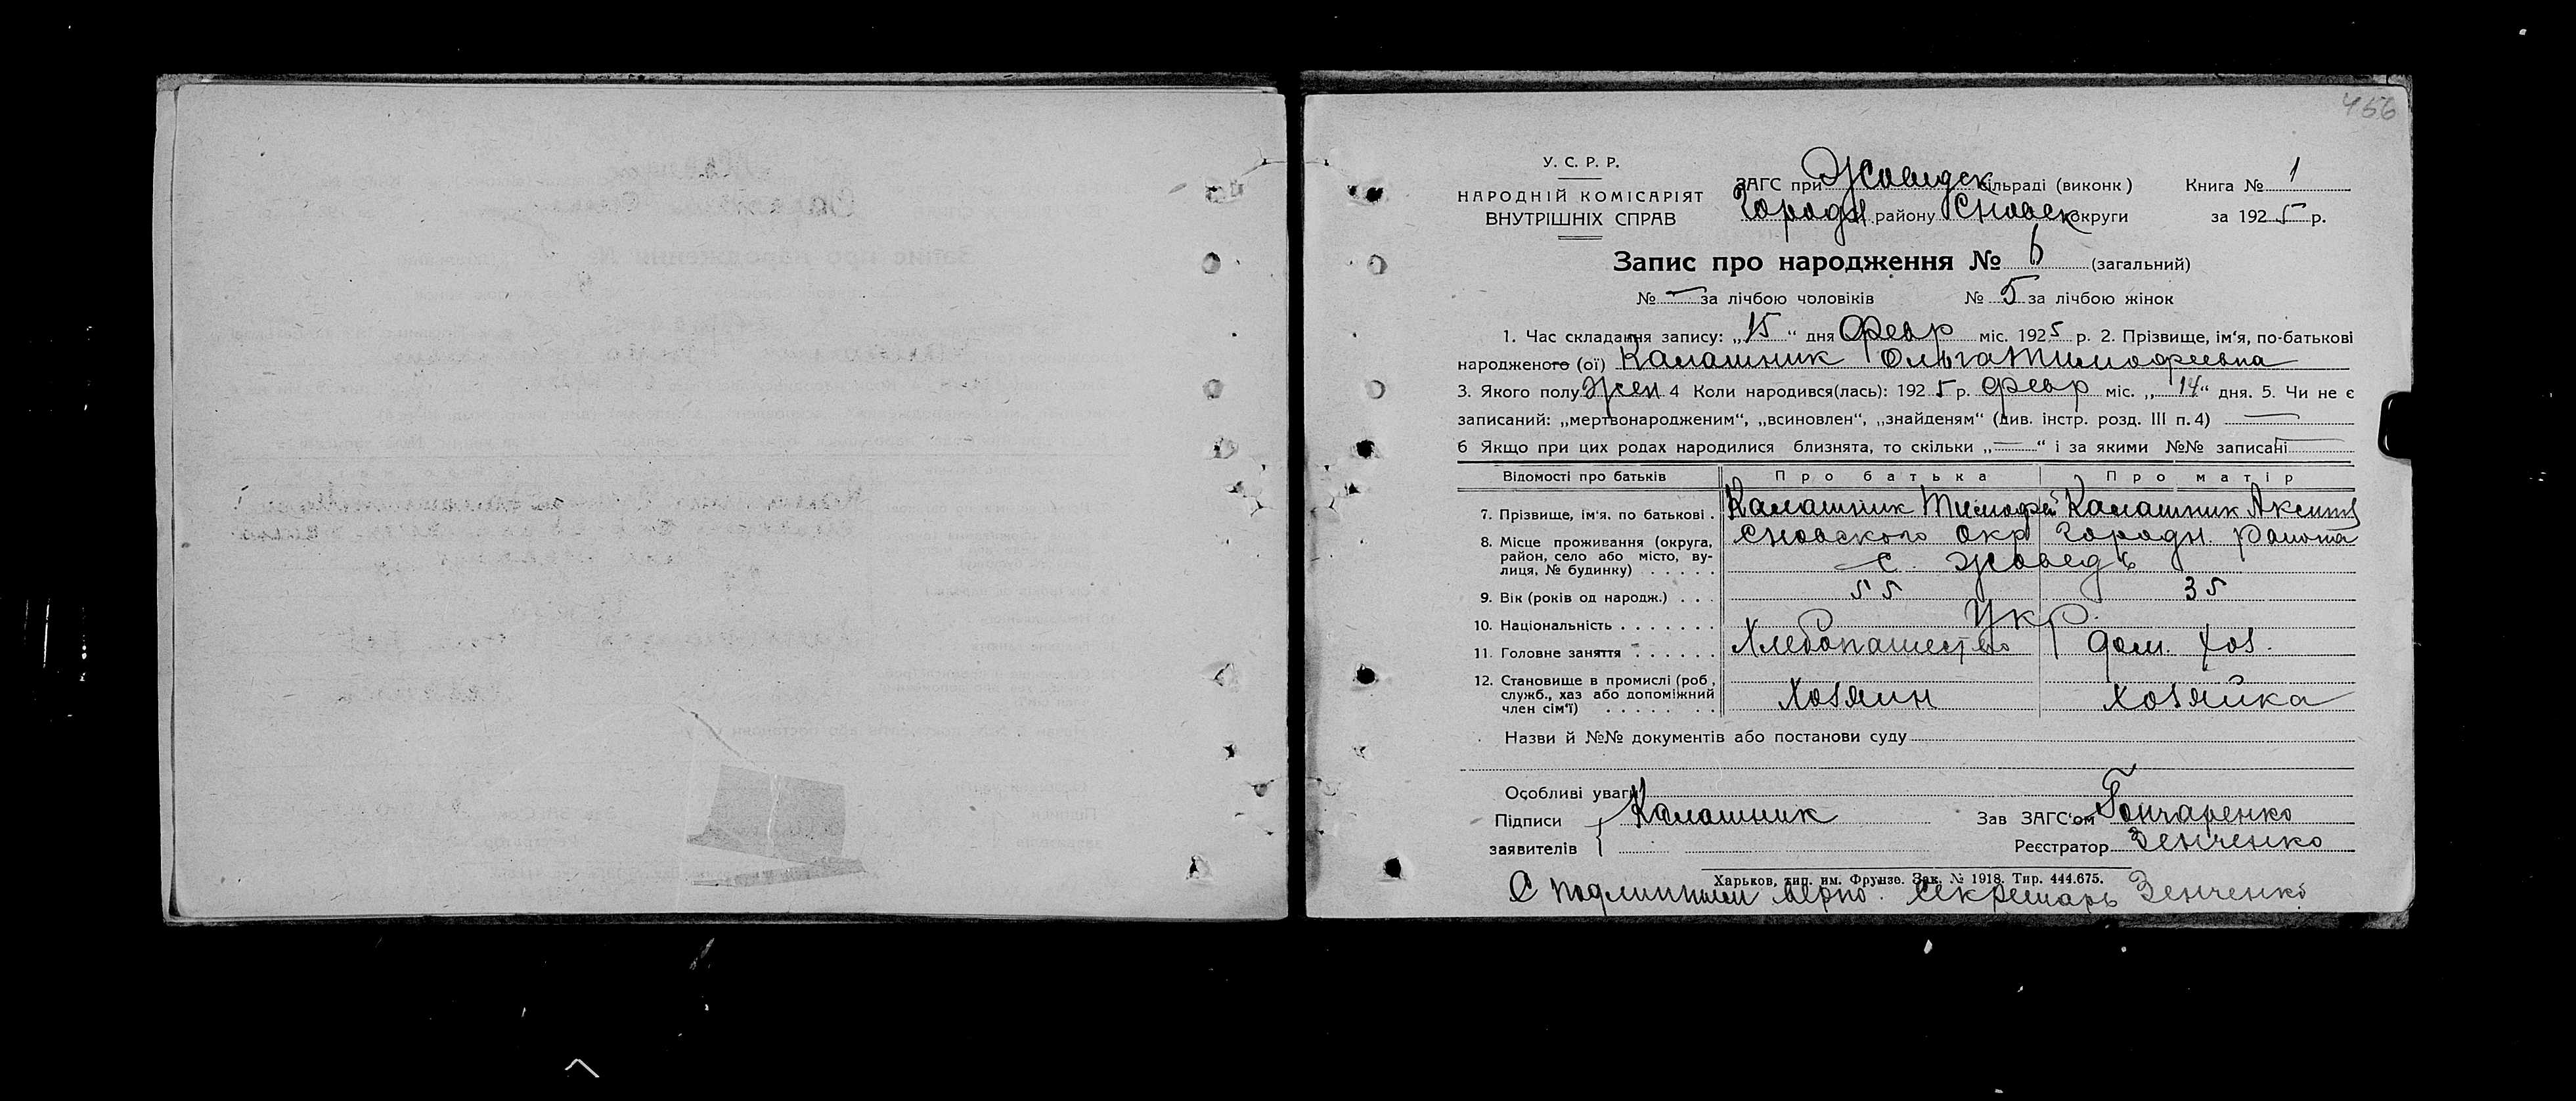 456
У. С. Р. Р.
НАРОДНІЙ КОМІСАРІЯТ
ВНУТРІШНІХ СПРАВ
ЗАГС при Жоведск сільраді (виконк) Книга № 1
Городн району Сновск округи за 1925 р.
Запис про народження № 6 (загальний)
№ — за лічбою чоловіків № 5 за лічбою жінок
1. Час складання запису: „15“ дня Февр міс. 1925 р. 2. Прізвище, ім'я, по-батькові
народженого (ої) Калашник Ольга Тимофеевна
3. Якого полу Жен 4 Коли народився(лась): 1925 р. Февр міс. „14“ дня. 5. Чи не є
записаний: „мертвонародженим“, „всиновлен“, „знайденям“ (див. інстр. розд. III п. 4) —
6 Якщо при цих родах народилися близнята, то скільки „—“ і за якими №№ записані —
Відомості про батьків Про батька Про матір
7. Прізвище, ім'я. по батькові . Калашник Тимофей Калашник Аксинья
8. Місце проживання (округа, район, село або місто, вулиця, № будинку) . . . . . Сновского Окр Городн. Района
с. Жоведь
9. Вік (років од народж.) . . . 55 35
10. Національність . . . . . . . Укр.
11. Головне заняття . . . . . . Хлебопашество дом. хоз.
12. Становище в промислі (роб., служб., хаз або допоміжний член сім'ї) . . . . . . . Хозяин Хозяйка
Назви й №№ документів або постанови суду
Особливі уваги
Підписи Калашник Зав ЗАГС'ом Гончаренко
заявителів Реєстратор Зенченко
Харьков, тип. им. Фрунзе. Зак. № 1918. Тир. 444.675.
С подлинным верно. Секретарь Зенченко